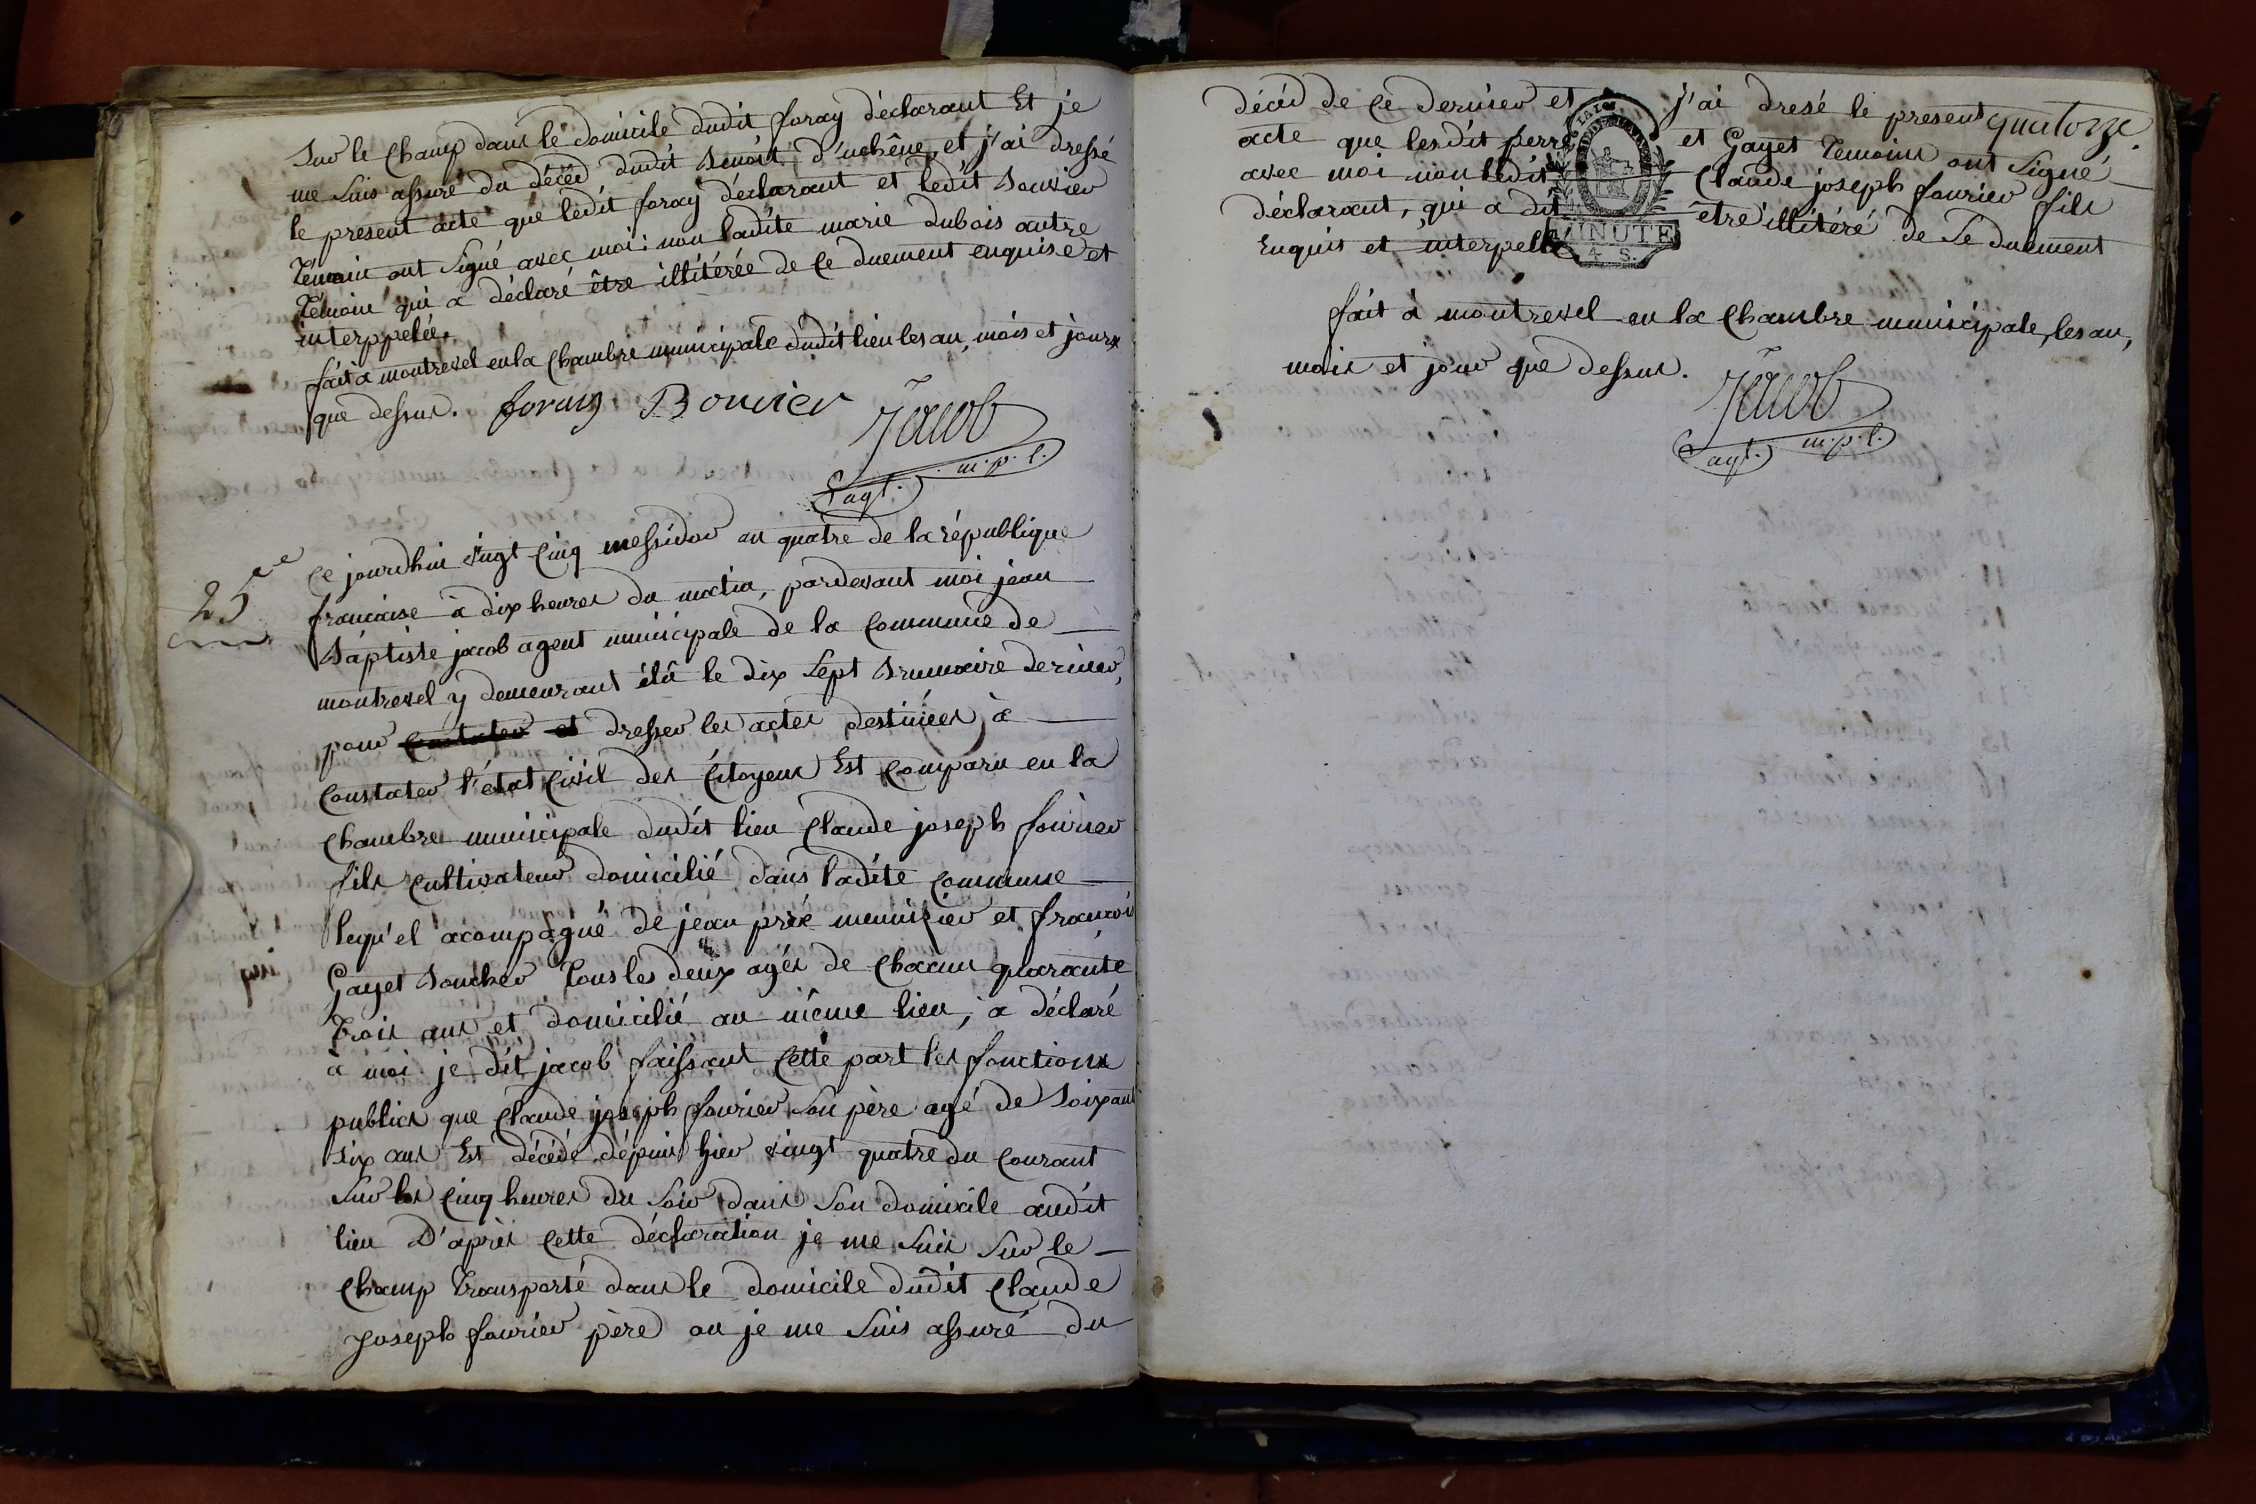 Sur le Champ dans le domicile dudit foray déclarant Et je
me suis assuré du décéd dudit benoit d'uchêne, et j'ai dressé
le présent acte que ledit foray déclarant et ledit bouvier
Témoin ont signé avec moi : non ladite marie dubois autre
Témoin qui a déclaré être illitérée de ce duement enquise et
interppelée.
fait a montrevel en la Chambre municipale dudit lieu les an, mois et jours
que dessus. foray Bouvier Jacob
agt. m.p.l.
25e
Ce jourdhui vingt Cinq messidor an quatre de la république
francaise à dix heures du matin, pardevant moi jean
baptiste jacob agent municipale de la Commune de
montrevel y demeurant élû le dix Sept brumaire dernier,
pour Constater et dresser les actes destinées à
Constater l'état Civil des Citoyens Est Comparu en la
Chambre municipale dudit lieu Claude joseph fourier
fils cultivateur domicilié dans ladite Commune
lequ'el acompagné de jean prré menuizier et francois
Gayet boucher Tous les deux agés de Chacun quarante
Trois ans et domicilié au même lieu, a déclaré
à moi je dit jacob faissant Cette part les fonctions
publics que Claude joseph fourier son père agé de Soixante
six ans Est décédé depuis hier vingt quatre du Courant
Sur les Cinq heures du Soir dans Son domicile audit
lieu D'après Cette déclaration je me Suis Sur le
Champ Transporté dans le domicile dudit Claude
joseph fourier père ou je me Suis assuré du
quatorze.
décéd de Ce dernier et j'ai dresé le present
acte que lesdit perré et Gayet Temoins ont Signé
avec moi non ledit Claude joseph fourier fils
déclarant, qui a dit être illitéré de Se duement
Enquis et interpellé
MINUTE
4 S.
fait à montrevel en la Chambre municipale, les an,
mois et jour que dessus. Jacob
agt. m.p.l.